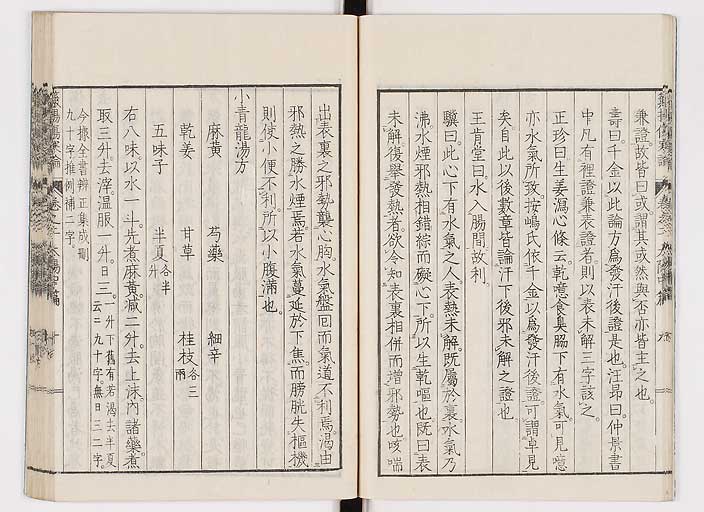 兼證。故皆曰或。謂其或然與否亦皆主之也。
壽曰。千金以此論方爲發汗後證是也。汪昻曰仲景書
中凡有裡證兼表證者。則以表未解三字該之。
正珍曰生姜瀉心條云。乾噫食臭脇下有水氣。可見噫
亦水氣所致。按嶋氏依千金以爲發汗後證。可謂卓見
矣。自此以後數章皆論汗下後邪未解之證也
王肯堂曰。水入腸間故利。
驥曰。此心下有水氣之人。表熱未解。既屬於裏水氣乃
沸。水煙邪熱相錯綜而礙心下。所以生乾嘔也。既曰表
未解。復舉發熱者。欲令知表裏相併而增邪勢也。咳喘
出表裏之邪勢襲心胸。水氣盤回而氣道不利焉。渴由
邪熱之勝水煙焉。若水氣蔓延於下焦。而膀胱失樞機
則使小便不利。所以小腹滿也。
小青龍湯方
麻黄 芍藥 細辛
乾姜 甘草 桂枝各三兩
五味子 半夏各半升
右八味。以水一斗。先煮麻黄。減二升。去上沫。內諸藥。煮
取三升。去滓。溫服一升。日三。一升下舊有若渴去半夏云云九十字。無日三二字。
今據全書辨正集成刪九十字推例補二字。